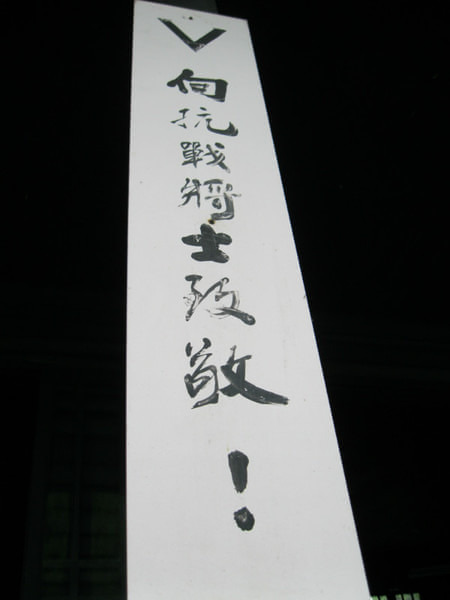 V
向抗戰將士致敬！